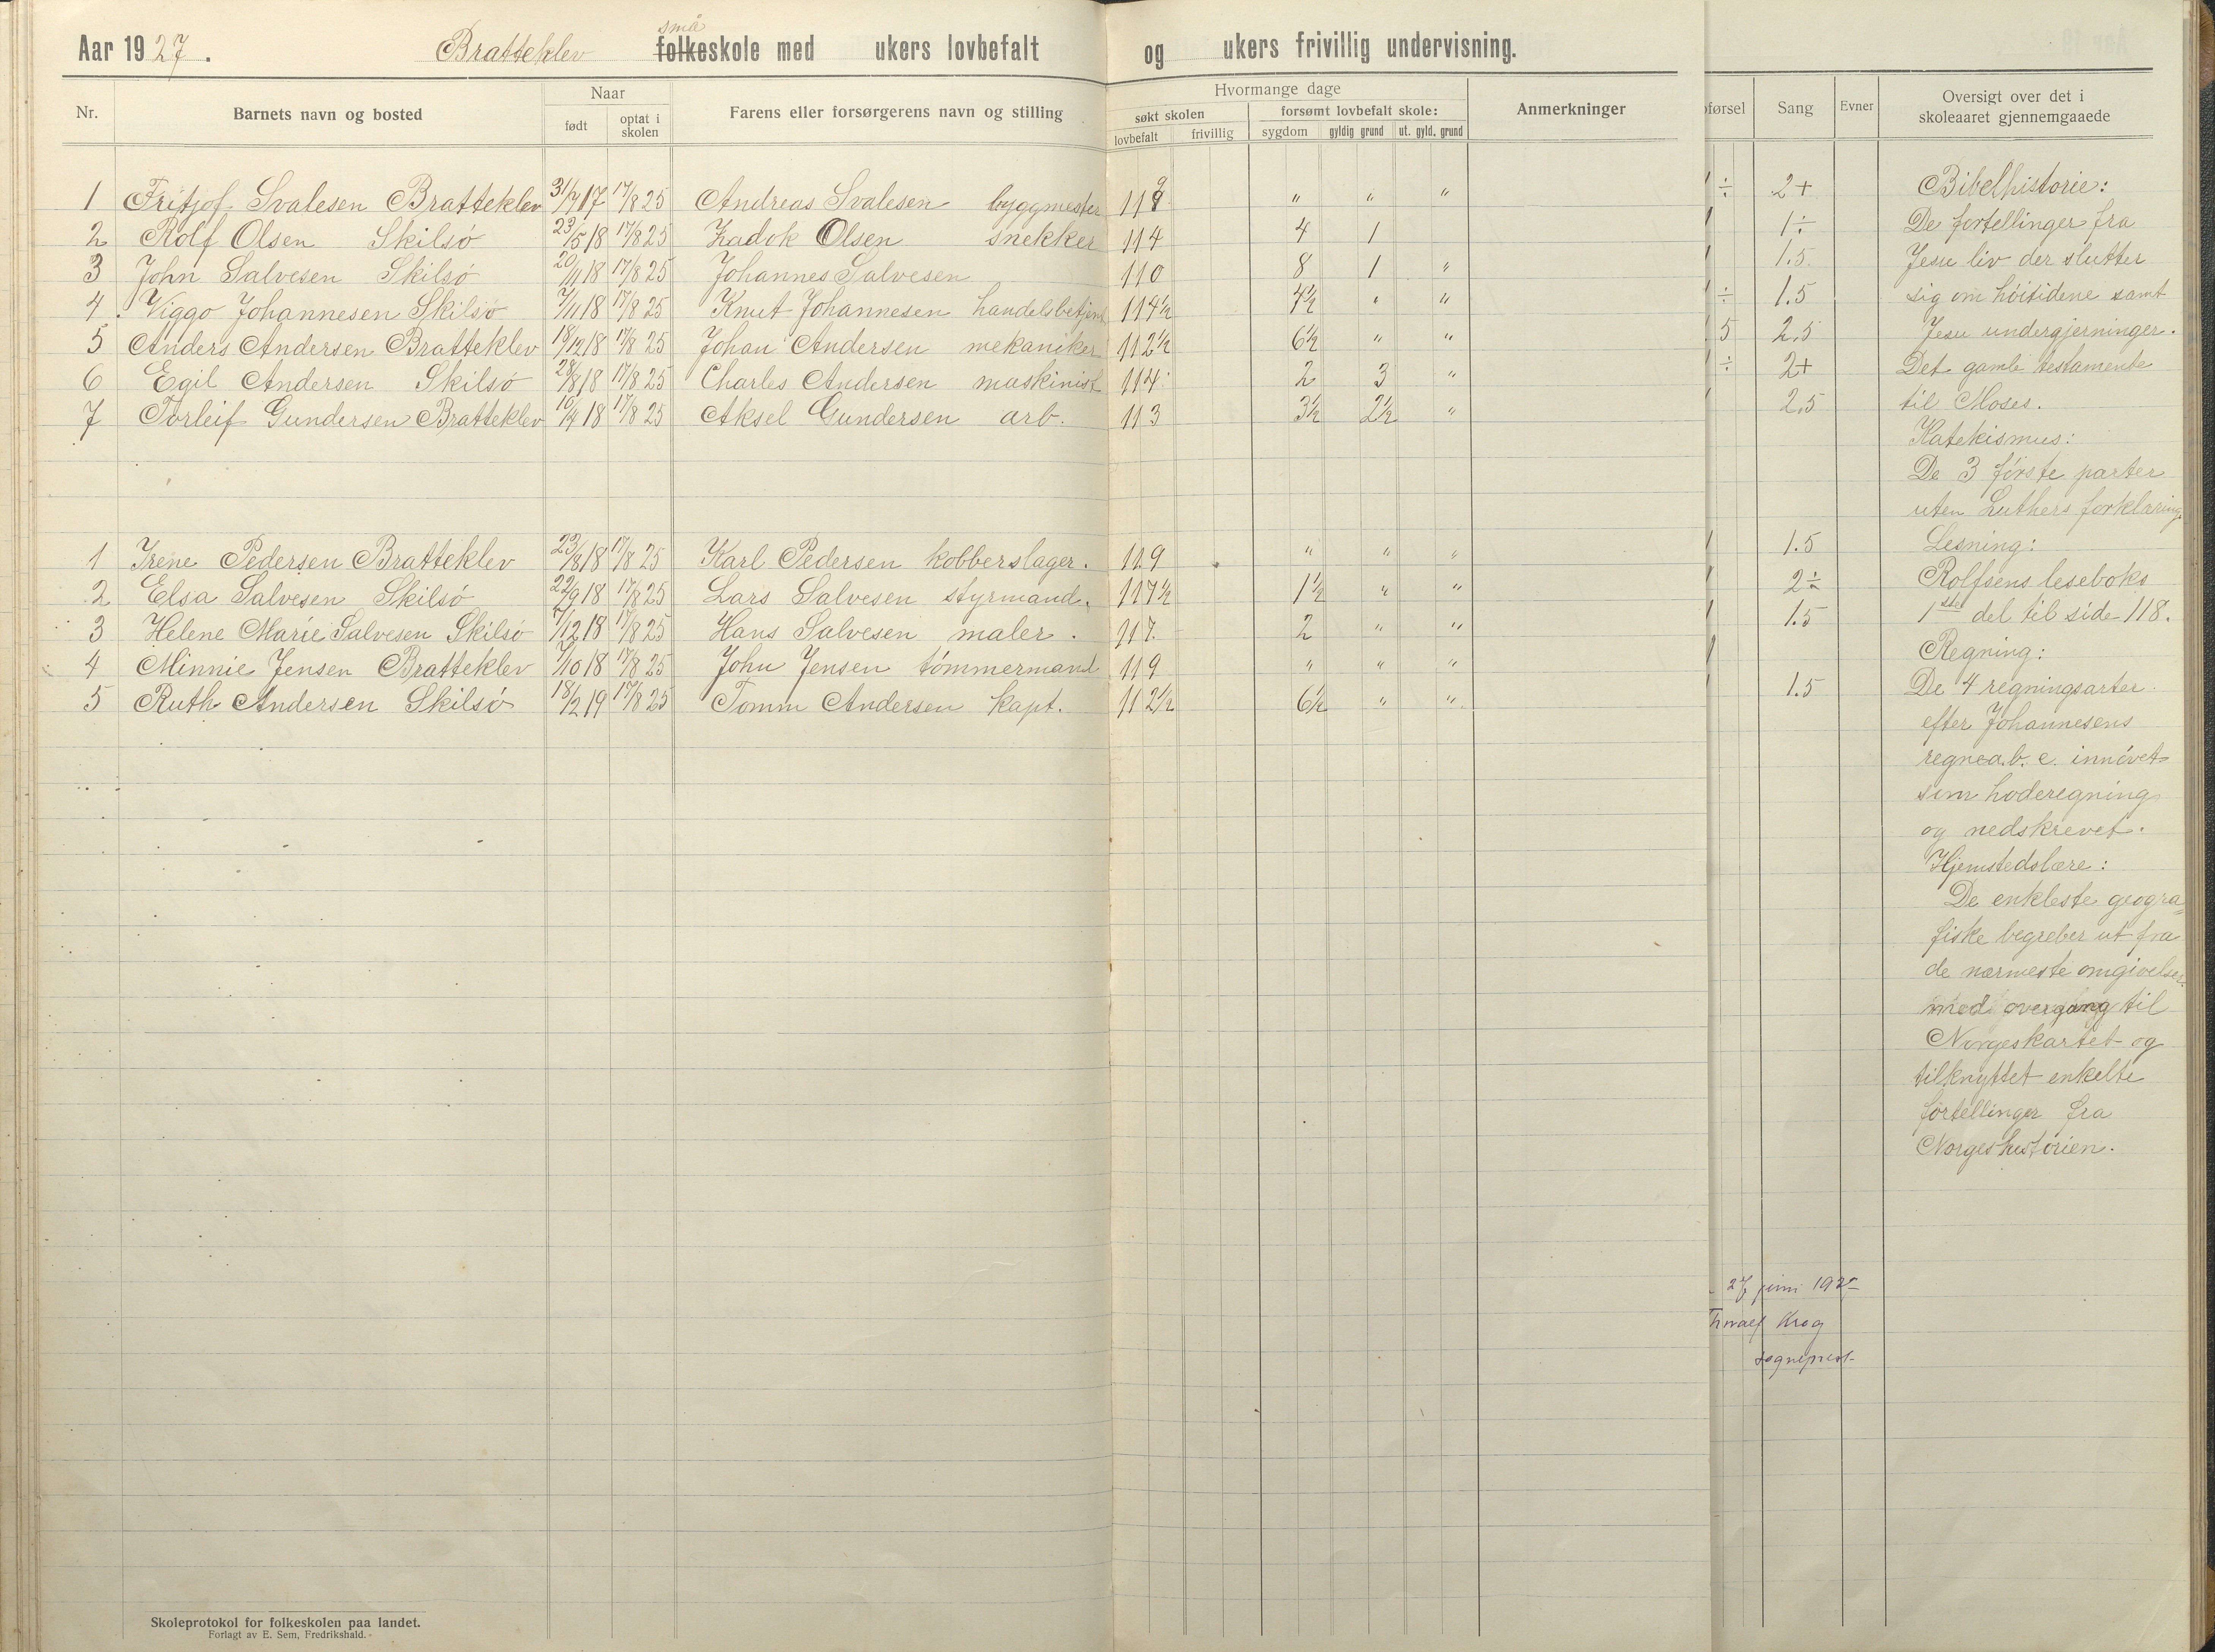 Aar 1927. Bratteklev små folkeskole med ukers lovbefalt og ukers frivillig undervisning.
Nr. Barnets navn og bosted Naar født optat i skolen Farens eller forsørgerens navn og stilling Hvormange dage søkt skolen lovbefalt frivillig forsømt lovbefalt skole: sygdom gyldig grund ut. gyld. grund Anmerkninger
førsel Sang Evner Oversigt over det i skoleaaret gjennemgaaede
1 Fritjof Svalesen Bratteklev 31/7 17 17/8 25 Andreas Svalesen byggmester 119 " " "
2 Rolf Olsen Skilsø 23/5 18 17/8 25 Zadok Olsen snekker 114 4 1
3 John Salvesen Skilsø 20/11 18 17/8 25 Johannes Salvesen 110 8 1 "
4 Viggo Johannesen Skilsø 7/11 18 17/8 25 Knut Johannesen handelsbetjent 114½ 4½ " "
5 Anders Andersen Bratteklev 18/12 18 17/8 25 Johan Andersen mekaniker 112½ 6½ " "
6 Egil Andersen Skilsø 28/8 18 17/8 25 Charles Andersen maskinist 114 2 3 "
7 Torleif Gundersen Bratteklev 10/4 18 17/8 25 Aksel Gundersen arb. 113 3½ 2½ "
1 Irene Pedersen Bratteklev 23/8 18 17/8 25 Karl Pedersen kobberslager. 119 " " "
2 Elsa Salvesen Skilsø 22/9 18 17/8 25 Lars Salvesen styrmand. 117½ 1½ " "
3 Helene Marie Salvesen Skilsø 7/12 18 17/8 25 Hans Salvesen maler. 117. 2 " "
4 Minnie Jensen Bratteklev 7/10 18 17/8 25 John Jensen tømmermand 119 " " "
5 Ruth Andersen Skilsø 18/2 19 17/8 25 Tomm Andersen kapt. 112½ 6½ " "
÷ 2+
1÷
1.5
÷ 1.5
5 2,5
÷ 2+
2,5
1.5
2÷
1.5
1.5
Bibelhistorie:
De fortellinger fra
Jesu liv der slutter
sig om høitidene samt
Jesu undergjerninger.
Det gamle testamente
til Moses.
Katekismus:
De 3 første parter
uten Luthers forklaring.
Lesning:
Rolfsens leseboks
1ste del til side 118.
Regning:
De 4 regningsarter
efter Johannesens
regnea.b.c. innøvet
som hoderegning
og nedskrevet.
Hjemstedslære:
De enkleste geogra=
fiske begreber ut fra
de nærmeste omgivelser
med overgang til
Norgeskartet og
tilknyttet enkelte
fortellinger fra
Norgeshistorien.
27 juni 1927
Krog
sogneprest
Skoleprotokol for folkeskolen paa landet.
Forlagt av E. Sem, Fredrikshald.